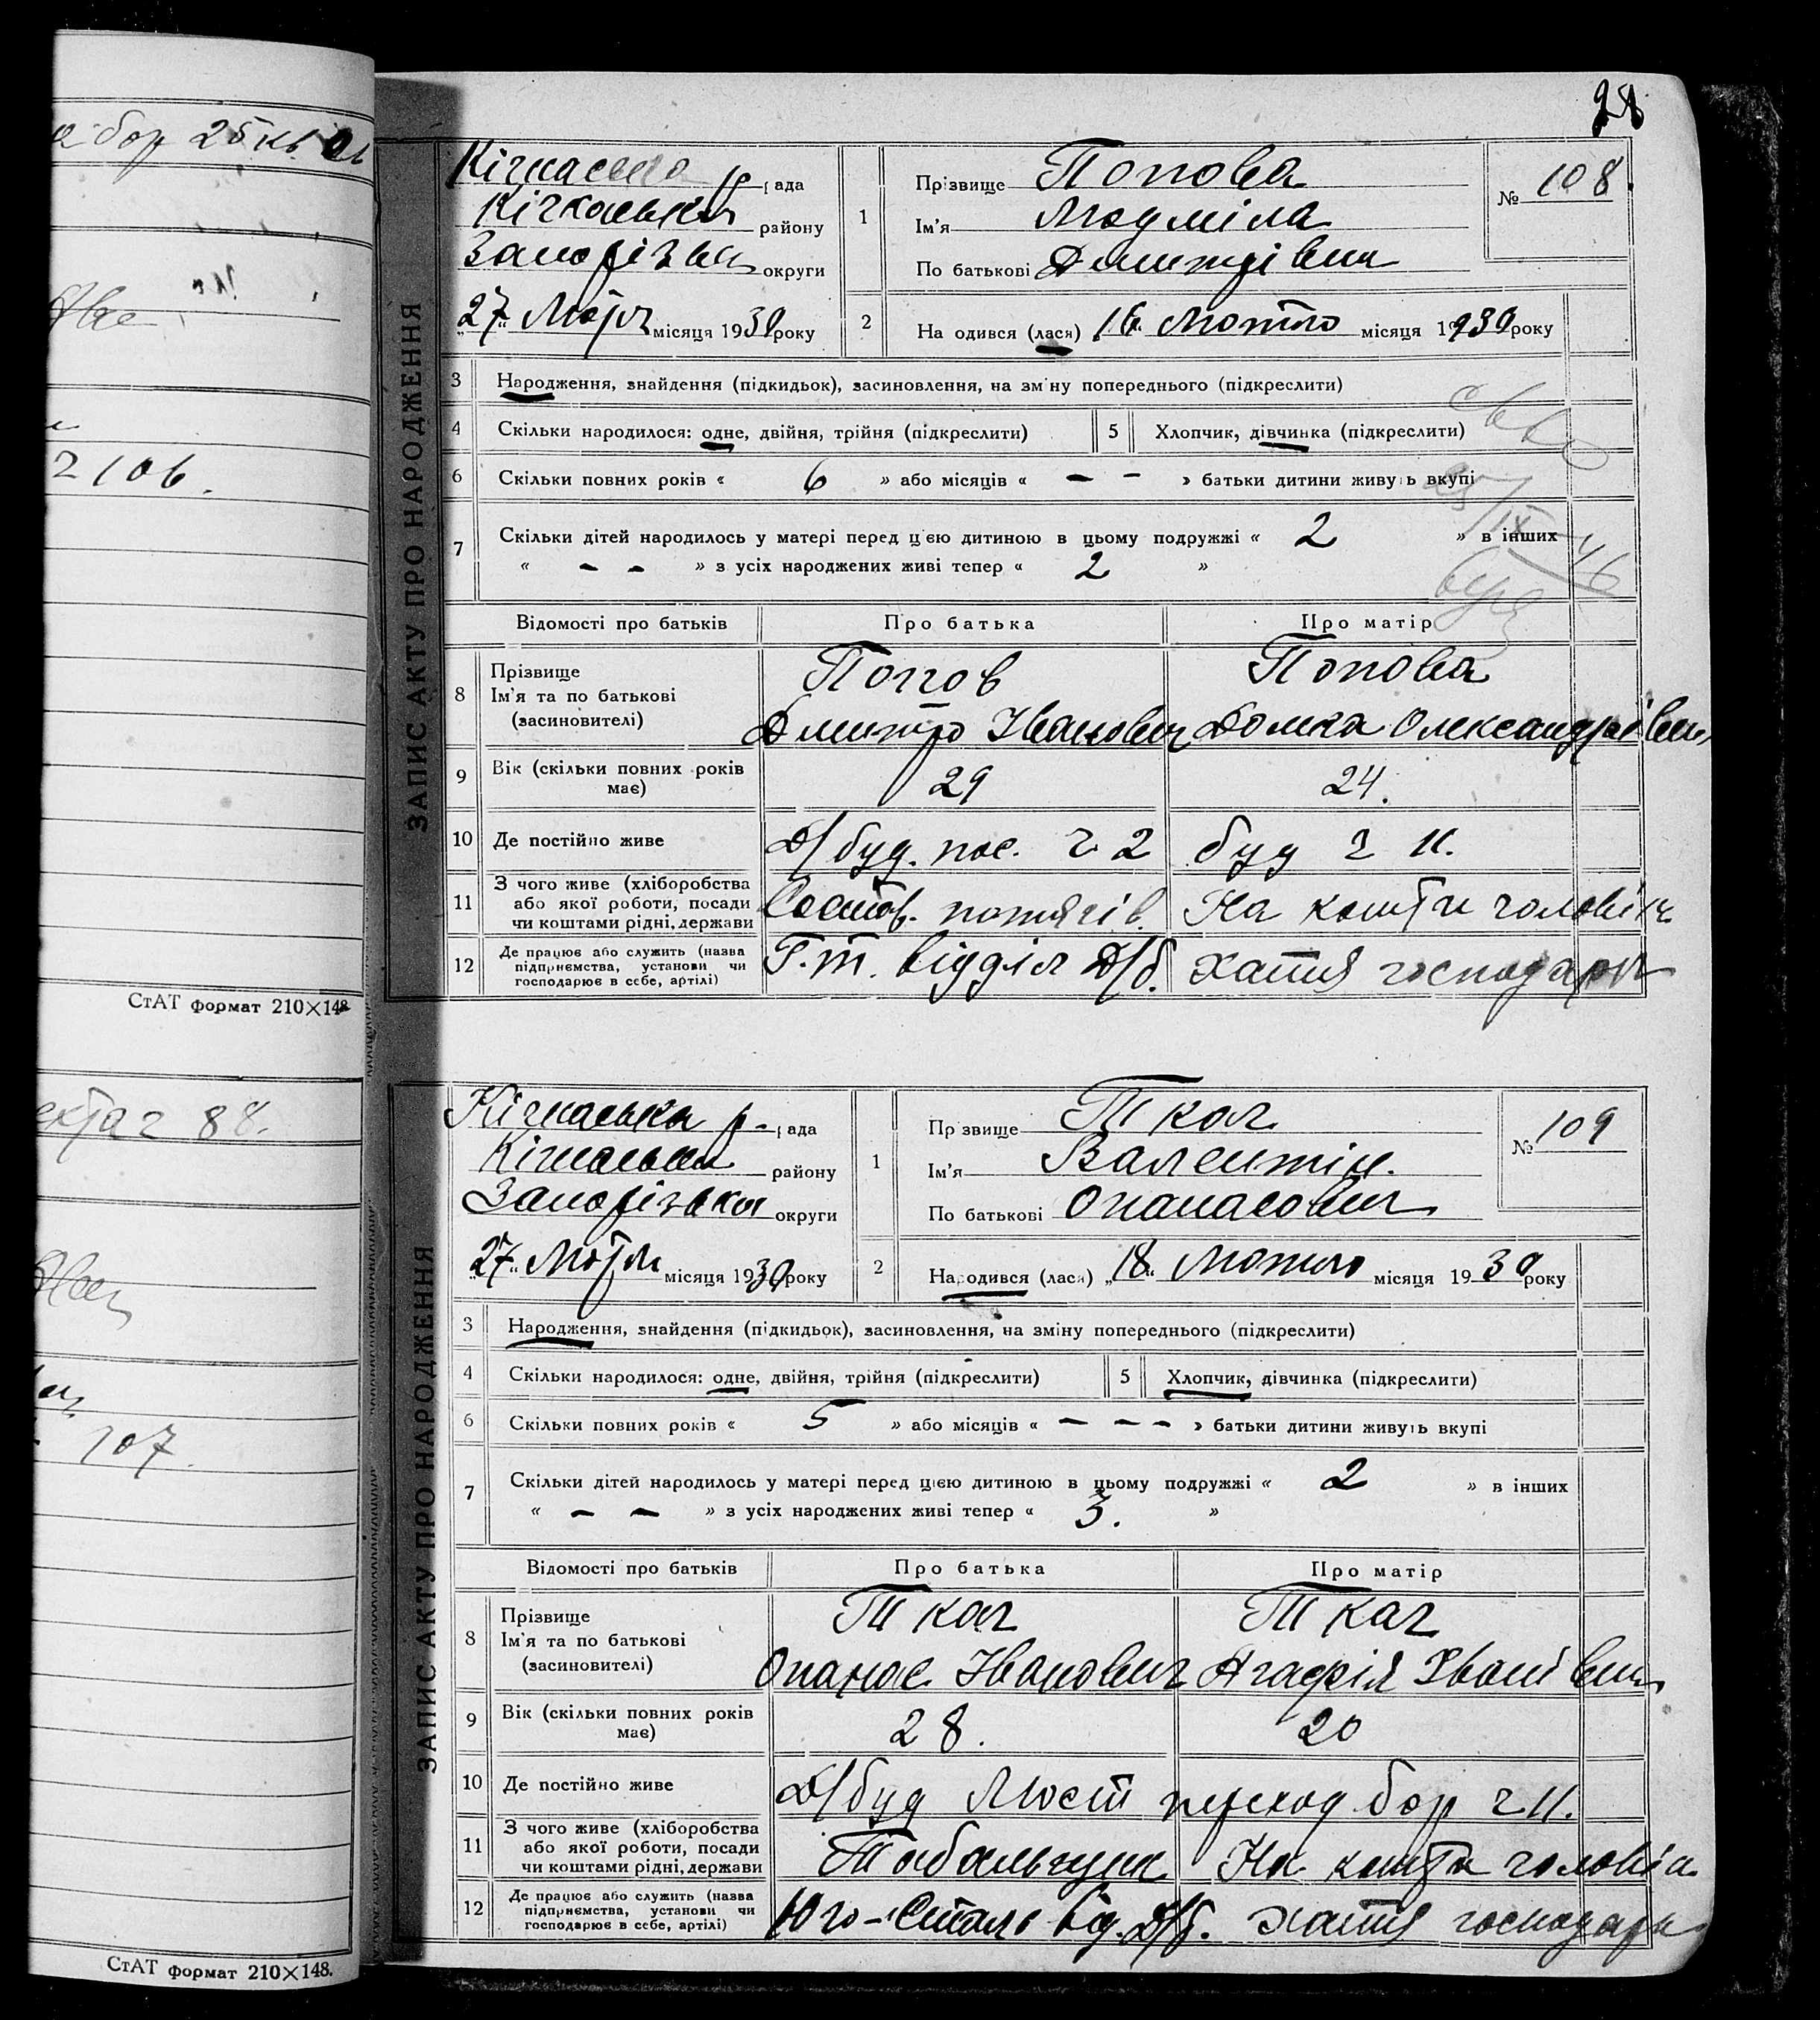 28
ЗАПИС АКТУ ПРО НАРОДЖЕННЯ
Кічкаська р. рада
Кічкаськ району
Запорізьк округи
"27" Лютм місяця 1930 року
1 Прізвище Попова № 108.
Ім'я Людміла
По батькові Дмитрівна
2 На одився (лася) 16 Лютого місяця 1930 року
3 Народження, знайдення (підкидьок), засиновлення, на зміну попереднього (підкреслити)
4 Скільки народилося: одне, двійня, трійня (підкреслити) 5 Хлопчик, дівчинка (підкреслити)
6 Скільки повних років « 6 » або місяців « – – » батьки дитини живуть вкупі
7 Скільки дітей народилось у матері перед цією дитиною в цьому подружжі « 2 » в інших
« – – » з усіх народжених живі тепер « 2 »
Відомості про батьків Про батька Про матір
8 Прізвище Ім'я та по батькові (засиновителі) Попов Попова
Дмитро Іванович Домка Олександрівн
9 Вік (скільки повних років має) 29 24.
10 Де постійно живе Д/буд. пос. ч 2 буд ч 11.
11 З чого живе (хліборобства або якої роботи, посади чи коштами рідні, держави Состав. потягів. На кошти чоловіка
12 Де працює або служить (назва підприємства, установи чи господарює в себе, артілі) Г.т. відділ Д/б. хатня господарк
ЗАПИС АКТУ ПРО НАРОДЖЕННЯ
Кічкаська р. рада
Кічкаськ району
Запорізька округи
"27" Лютм місяця 1930 року
1 Прізвище Ткач № 109
Ім'я Валентін.
По батькові Опанасович
2 Народився (лася) „18" Лютого місяця 1930 року
3 Народження, знайдення (підкидьок), засиновлення, на зміну попереднього (підкреслити)
4 Скільки народилося: одне, двійня, трійня (підкреслити) 5 Хлопчик, дівчинка (підкреслити)
6 Скільки повних років « 5 » або місяців « – – – » батьки дитини живуть вкупі
7 Скільки дітей народилось у матері перед цією дитиною в цьому подружжі « 2 » в інших
« – – » з усіх народжених живі тепер « 3. »
Відомості про батьків Про батька Про матір
8 Прізвище Ім'я та по батькові (засиновителі) Ткач Ткач
Опанас Іванович Агафія Іванівн
9 Вік (скільки повних років має) 28. 20
10 Де постійно живе Д/буд Мост переход бар ч 11.
11 З чого живе (хліборобства або якої роботи, посади чи коштами рідні, держави Табельчик На кошти чоловіка
12 Де працює або служить (назва підприємства, установи чи господарює в себе, артілі) Юго-Сталь від. Д/б. хатня господарк
СтАТ формат 210×148
СтАТ формат 210×148.